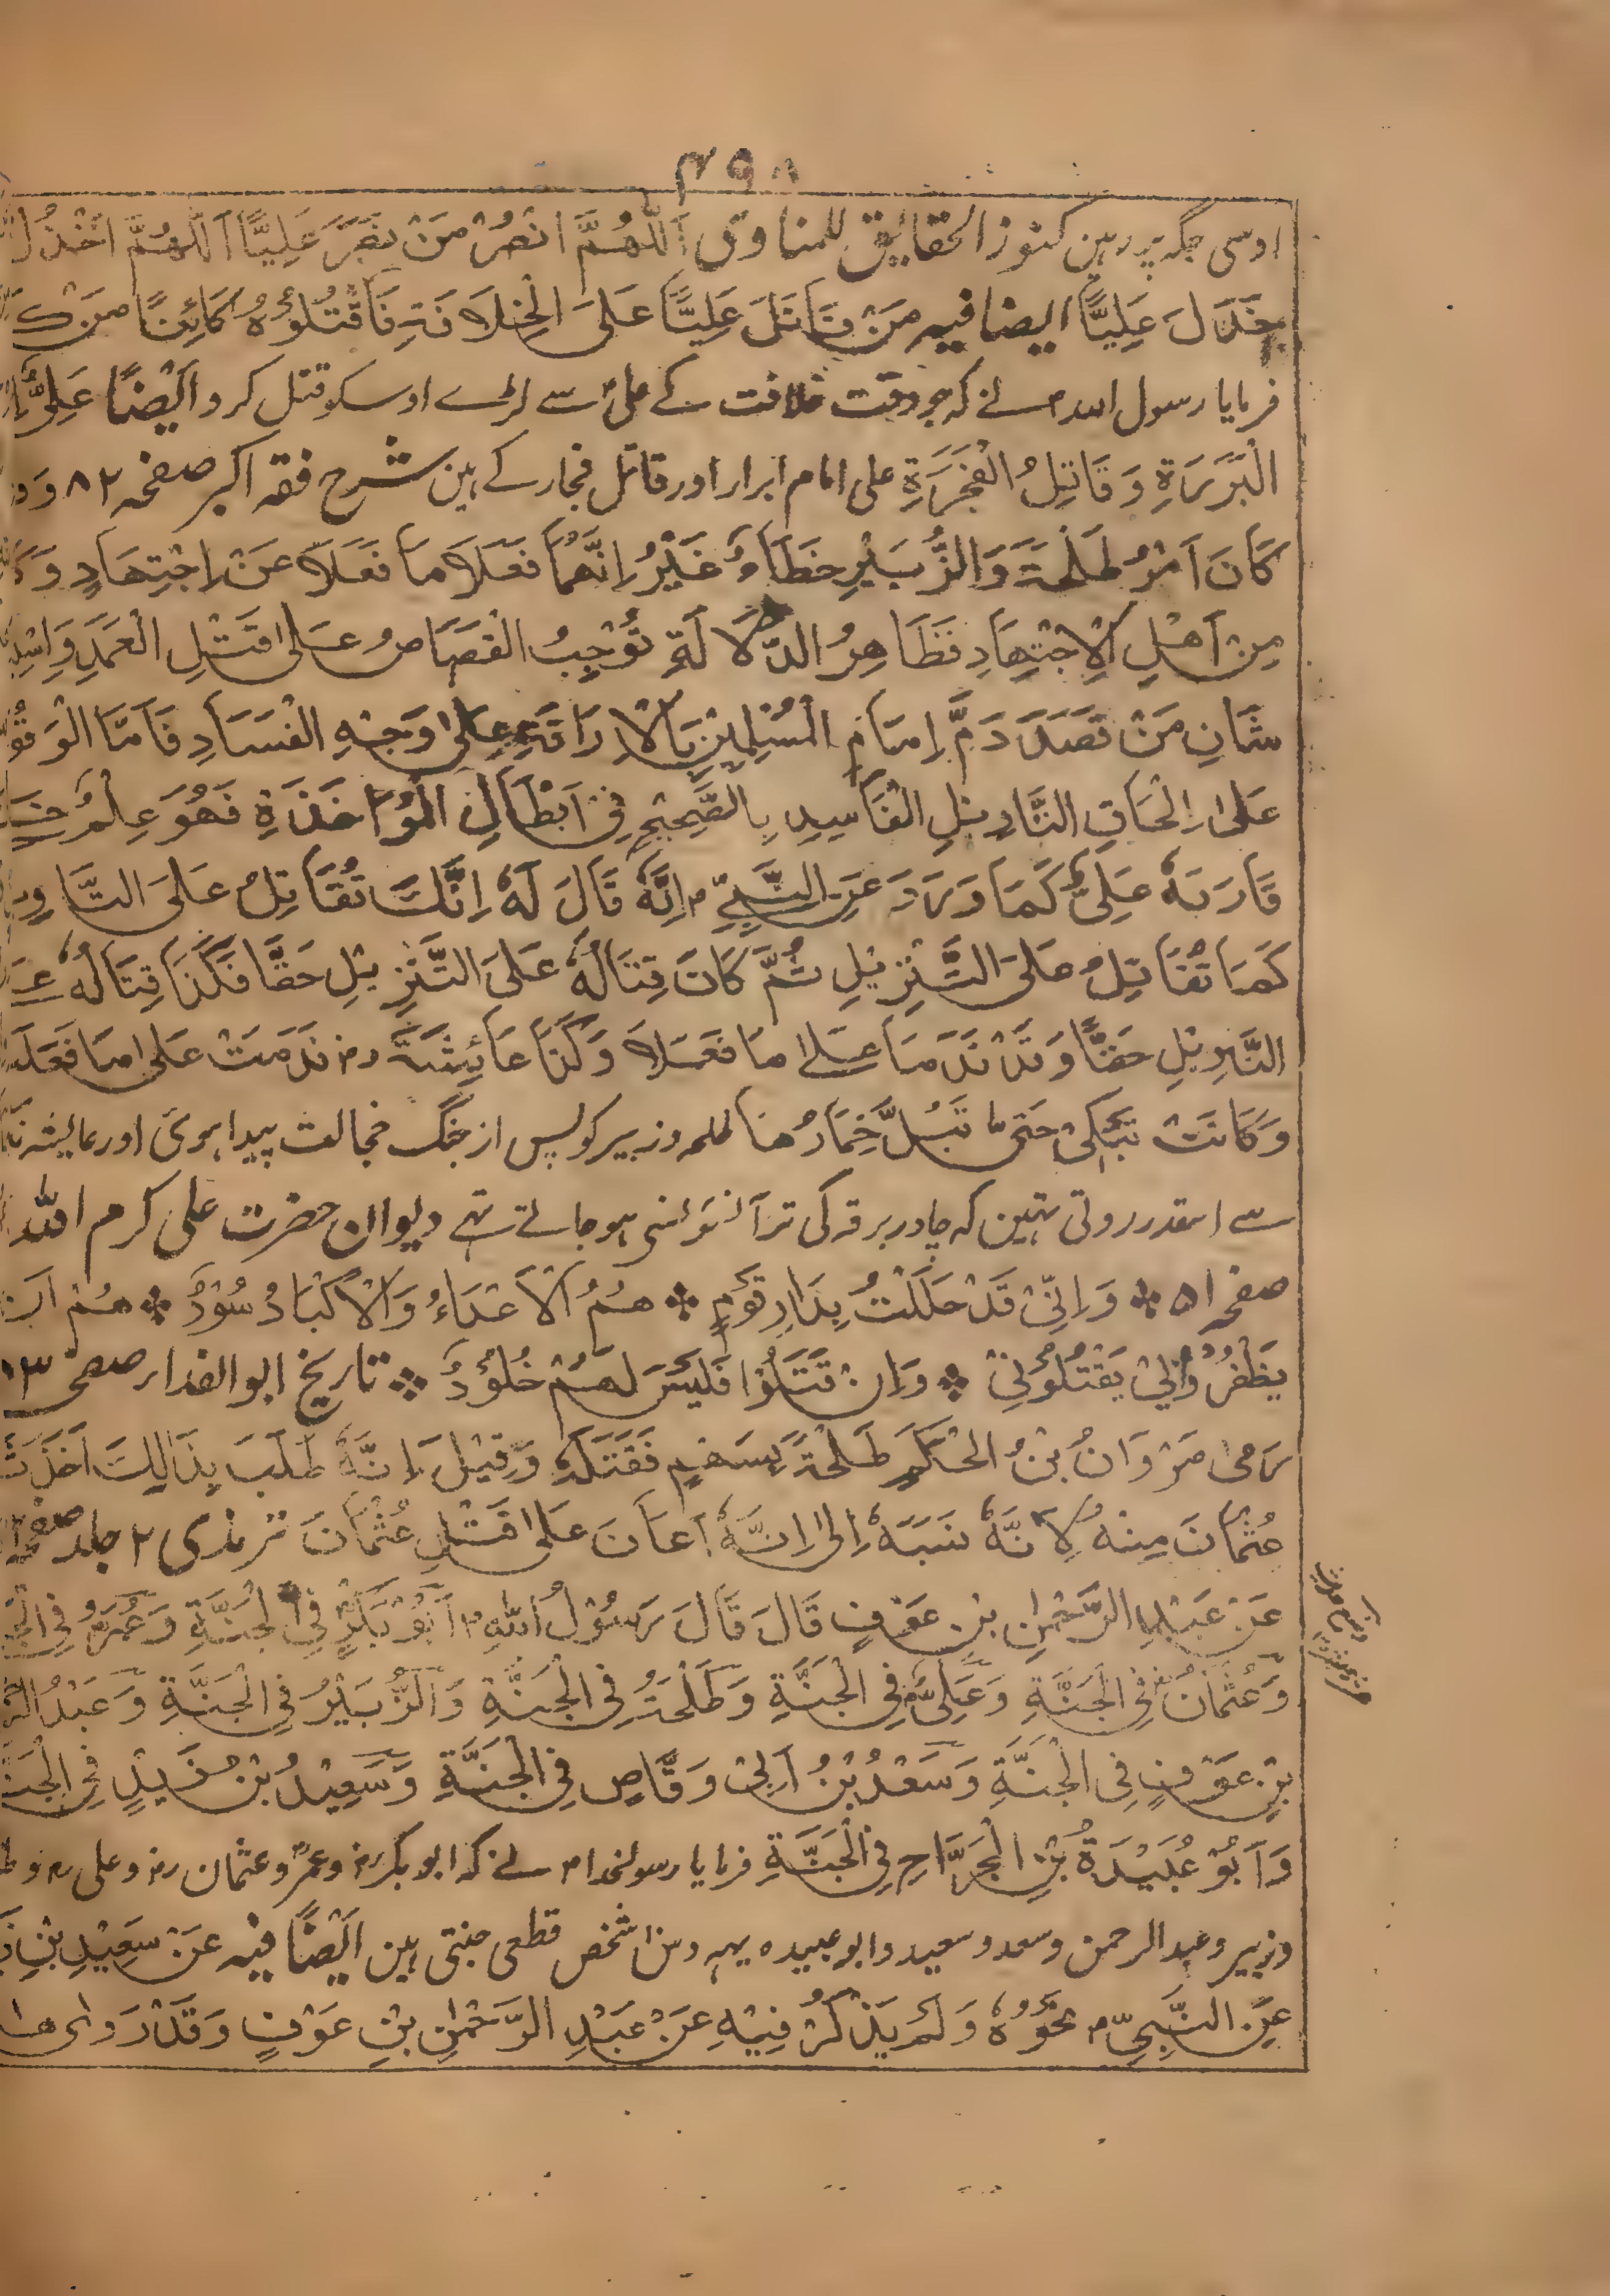 ۴۹۸
اوسی جگہ پر رہین کنوز الحقایق للمناوی اَللّٰهُمَّ انْصُرْ مَنْ نَصَرَ عَلِیًّا اَللّٰهُمَّ اخْذُلْ
خَذَلَ عَلِیًّا ایضا فیہ مَنْ قَاتَلَ عَلِیًّا عَلَی الْخِلَافَةِ فَاقْتُلُوْهُ کَائِنًا مَنْ
فرمایا رسول اللہ م نے کہ جو وقت خلافت کے علی سے لڑے اوسکو قتل کرو اَیْضًا عَلِیٌّ
الْبَرَرَةِ وَقَاتِلُ الْفَجَرَةِ علی امام ابرار اور قاتل فجار کے ہین شرح فقہ اکبر صفحہ ۸۲
کَانَ اَمْرُ طَلْحَةَ وَالزُّبَیْرِ خَطَاءً غَیْرُ اِنَّهُمَا فَعَلَا مَا فَعَلَا عَنْ اِجْتِهَادٍ
مِنْ اَهْلِ الْاِجْتِهَادِ فَظَاهِرُ الدَّلَالَةِ تُوْجِبُ الْقِصَاصُ عَلٰی قَتْلِ الْعَمَدِ
شَانِ مَنْ قَصَدَ دَمَّ اِمَامِ الْمُسْلِمِیْنَ بِالْاِرَاقَةِ عَلٰی وَجْهِ الْفَسَادِ فَاَمَّا
عَلٰی اِلْحَاقِ التَّاوِیْلِ الْفَاسِدِ بِالصَّحِیْحِ فِیْ اَبْطَالِ الْمُوَاخَذَةِ فَهُوَ عِلْمٌ
قَارَبَهٗ عَلِیٌّ کَمَا وَرَدَ عَنِ النَّبِیِّ م اِنَّهٗ قَالَ لَهٗ اِنَّكَ تُقَاتِلُ عَلَی
کَمَا تُقَاتِلُ عَلَی التَّنْزِیْلِ ثُمَّ کَانَ قِتَالُهٗ عَلَی التَّنْزِیْلِ حَقًّا فَکَذَا قِتَالُهٗ
التَّاوِیْلِ حَقًّا وَقَدْ نَدَمَا عَلٰی مَا فَعَلَا وَکَذَا عَائِشَةَ رض نَدَمَتْ عَلٰی مَا
وَکَانَتْ تَبْکِیْ حَتّٰی تَبُلَّ خِمَارُهَا طلحہ و زبیر کو پس از جنگ خجالت پیدا ہوئی اور عایشہ
سے اسقدر روتی تہین کہ چادر برقہ کی تر آنسوئنسی ہو جاتے تہے دیوان حضرت علی کرم اللہ
صفحہ ۵۱ ❖ وَاِنِّیْ قَدْ حَلَلْتُ بِدَارِ قَوْمٍ ❖ هُمُ الْاَعْدَاءُ وَالْاَکْبَادُ سُوْدٌ ❖ هُمْ
یَظْفُرُوْا بِیْ یَقْتُلُوْنِیْ ❖ وَاِنْ قَتَلُوْا فَلَیْسَ لَهُمْ خُلُوْدٌ ❖ تاریخ ابو الفدا صفحہ
رَمٰی مَرْوَانُ بْنُ الْحَکَمِ طَلْحَةَ بِسَهْمٍ فَقَتَلَهٗ وَقِیْلَ اِنَّهٗ طَلَبَ بِذَالِكَ
عُثْمَانَ مِنْهُ لِاَنَّهٗ نَسَبَهٗ اِلٰی اِنَّهٗ اَعَانَ عَلٰی قَتْلِ عُثْمَانَ ترمذی ۲ جلد
عَنْ عَبْدِ الرَّحْمٰنِ بْنِ عَوْفٍ قَالَ قَالَ رَسُوْلُ اللّٰهِ م اَبُوْ بَکْرٍ فِی الْجَنَّةِ وَعُمَرُ
وَعُثْمَانُ فِی الْجَنَّةِ وَعَلِیٌّ فِی الْجَنَّةِ وَطَلْحَةُ فِی الْجَنَّةِ وَالزُّبَیْرُ فِی الْجَنَّةِ وَعَبْدُ
بْنِ عَوْفٍ فِی الْجَنَّةِ وَسَعْدُ بْنُ اَبِیْ وَقَّاصٍ فِی الْجَنَّةِ وَسَعِیْدُ بْنُ زَیْدٍ فِی
وَاَبُوْ عُبَیْدَةُ بْنِ الْجَرَّاحِ فِی الْجَنَّةِ فرمایا رسولخدا م نے کہ ابو بکر رض وعمر وعثمان رض وعلی رض
وزبیر وعبد الرحمن وسعد وسعید وابو عبیدہ یہہ دس شخص قطعی جنتی ہین اَیْضًا فِیْهِ عَنْ سَعِیْدِ بْنِ
عَنِ النَّبِیِّ م نَحْوُهٗ وَلَمْ یَذْکُرْ فِیْهِ عَنْ عَبْدِ الرَّحْمٰنِ بْنِ عَوْفٍ وَقَدْ رَوٰی